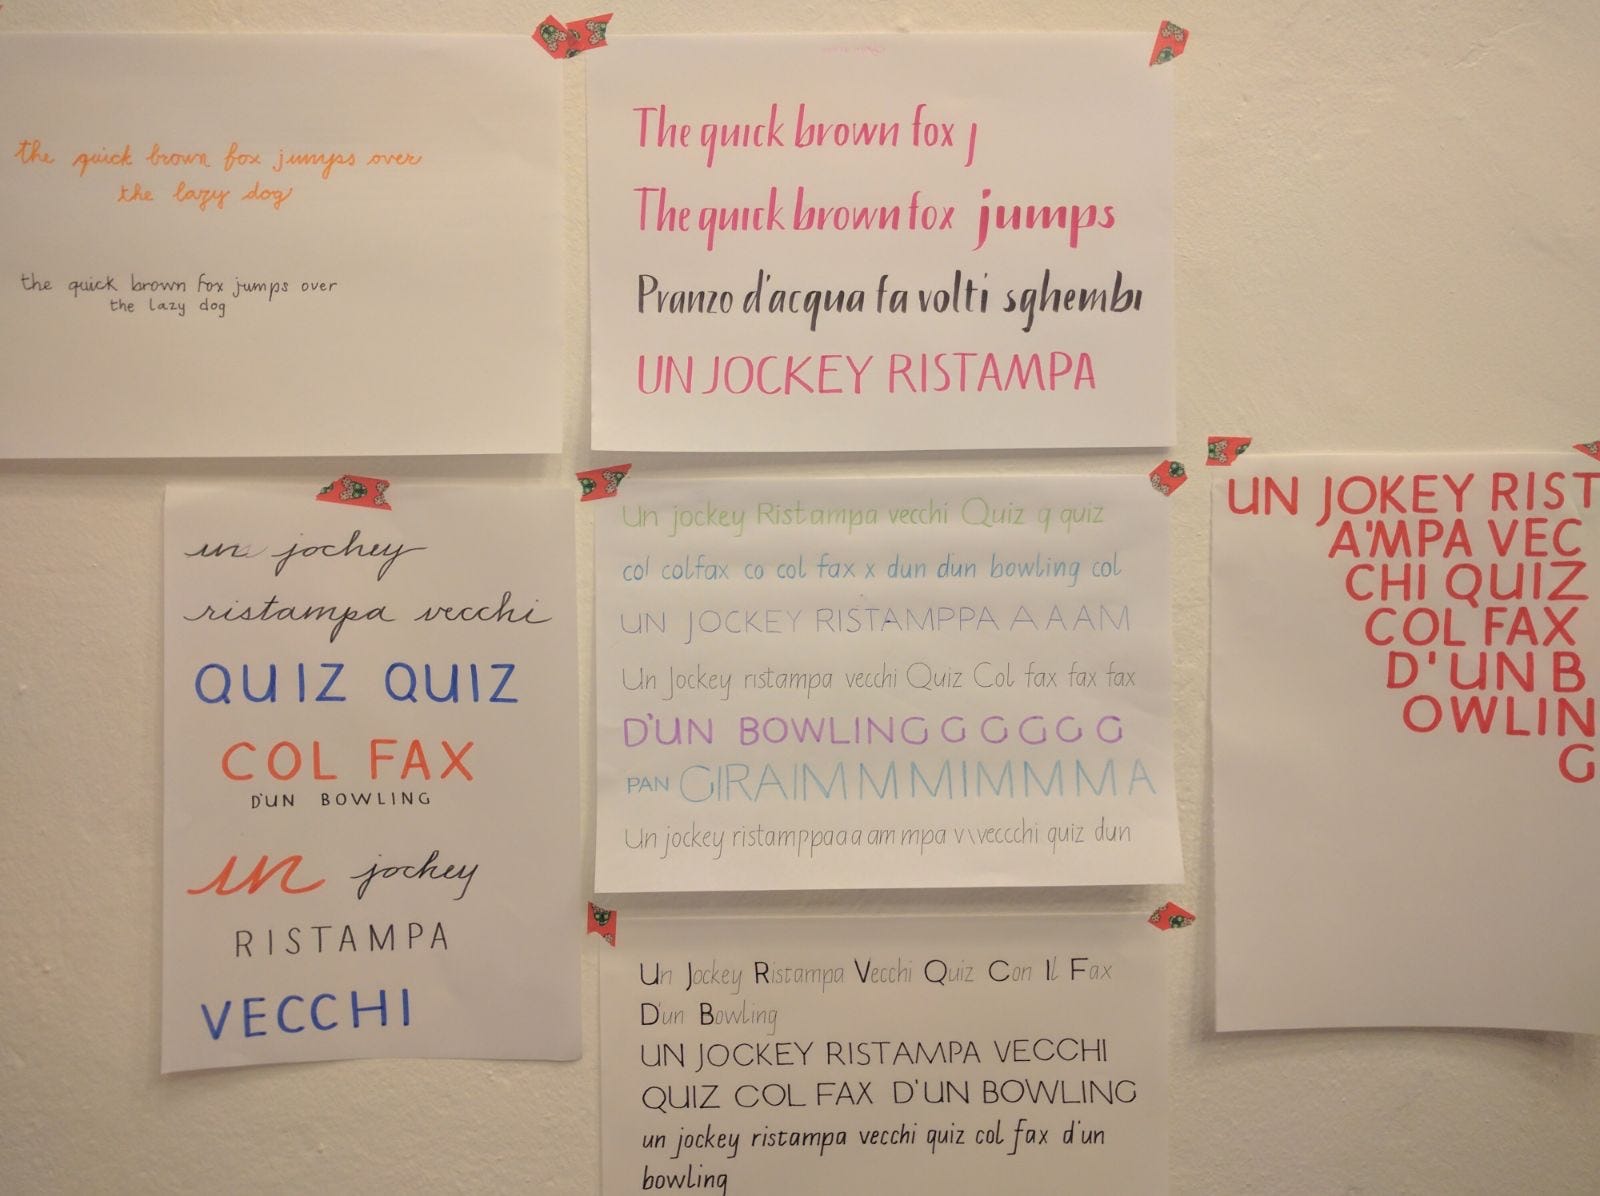 the quick brown fox jumps over
the lazy dog
the quick brown fox jumps over
the lazy dog
The quick brown fox j
The quick brown fox jumps
Pranzo d'acqua fa volti sghembi
UN JOCKEY RISTAMPA
un jockey
ristampa vecchi
QUIZ QUIZ
COL FAX
D'UN BOWLING
un jockey
RISTAMPA
VECCHI
Un jockey Ristampa vecchi Quiz q quiz
col colfax co col fax x dun dun bowling col
UN JOCKEY RISTAMPPA A A AM
Un Jockey ristampa vecchi Quiz Col fax fax fax
D'UN BOWLING G G G G G
PAN GIRAIMMMIMMMA
Un jockey ristamppaaa am mpa v\veccchi quiz dun
Un Jockey Ristampa Vecchi Quiz Con Il Fax
D'un Bowling
UN JOCKEY RISTAMPA VECCHI
QUIZ COL FAX D'UN BOWLING
un jockey ristampa vecchi quiz col fax d'un
bowling
UN JOKEY RIST
A'MPA VEC
CHI QUIZ
COL FAX
D'UN B
OWLIN
G